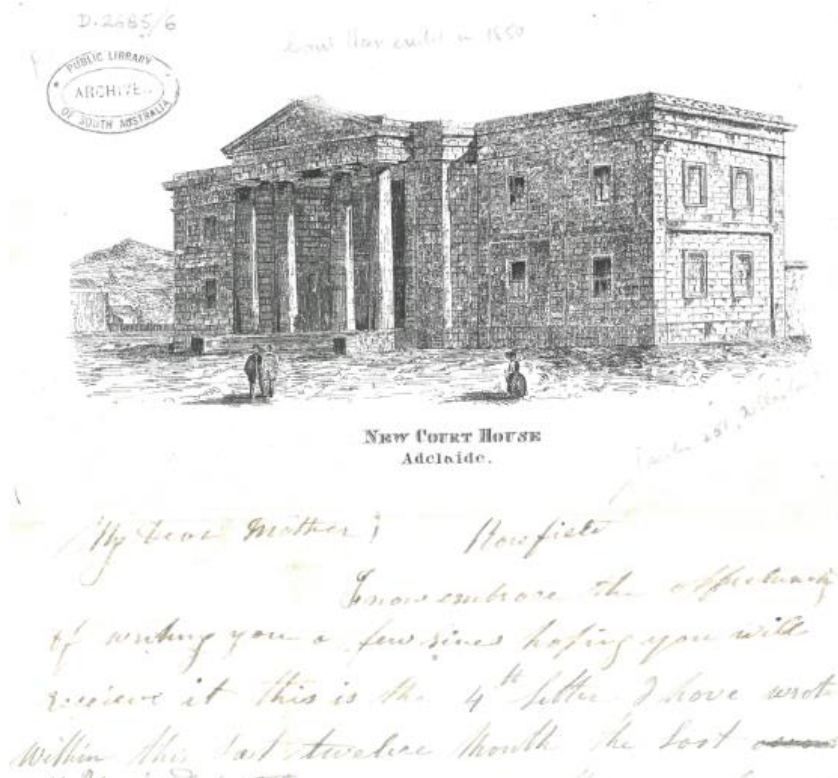 D.2685/6
in 1850
PUBLIC LIBRARY
ARCHIVES
OF SOUTH AUSTRALIA
NEW COURT HOUSE
Adelaide.
My Dear Mother;
I now embrace the
of writing you a few lines hoping you will
recieve it this is the 4th letter I have wrote
within this last twelve Month the last